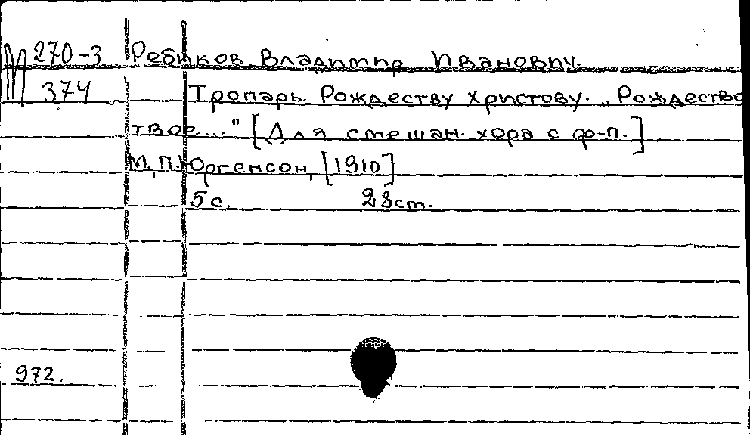 М 270-3 Ребиков Владимир Иванович.
374 Тропарь Рождеству Христову. „Рождество
твое..." [Для смешан. хора с ф-п.]
М, П. Юргенсон, [1910]
5 с. 28 ст.
972.